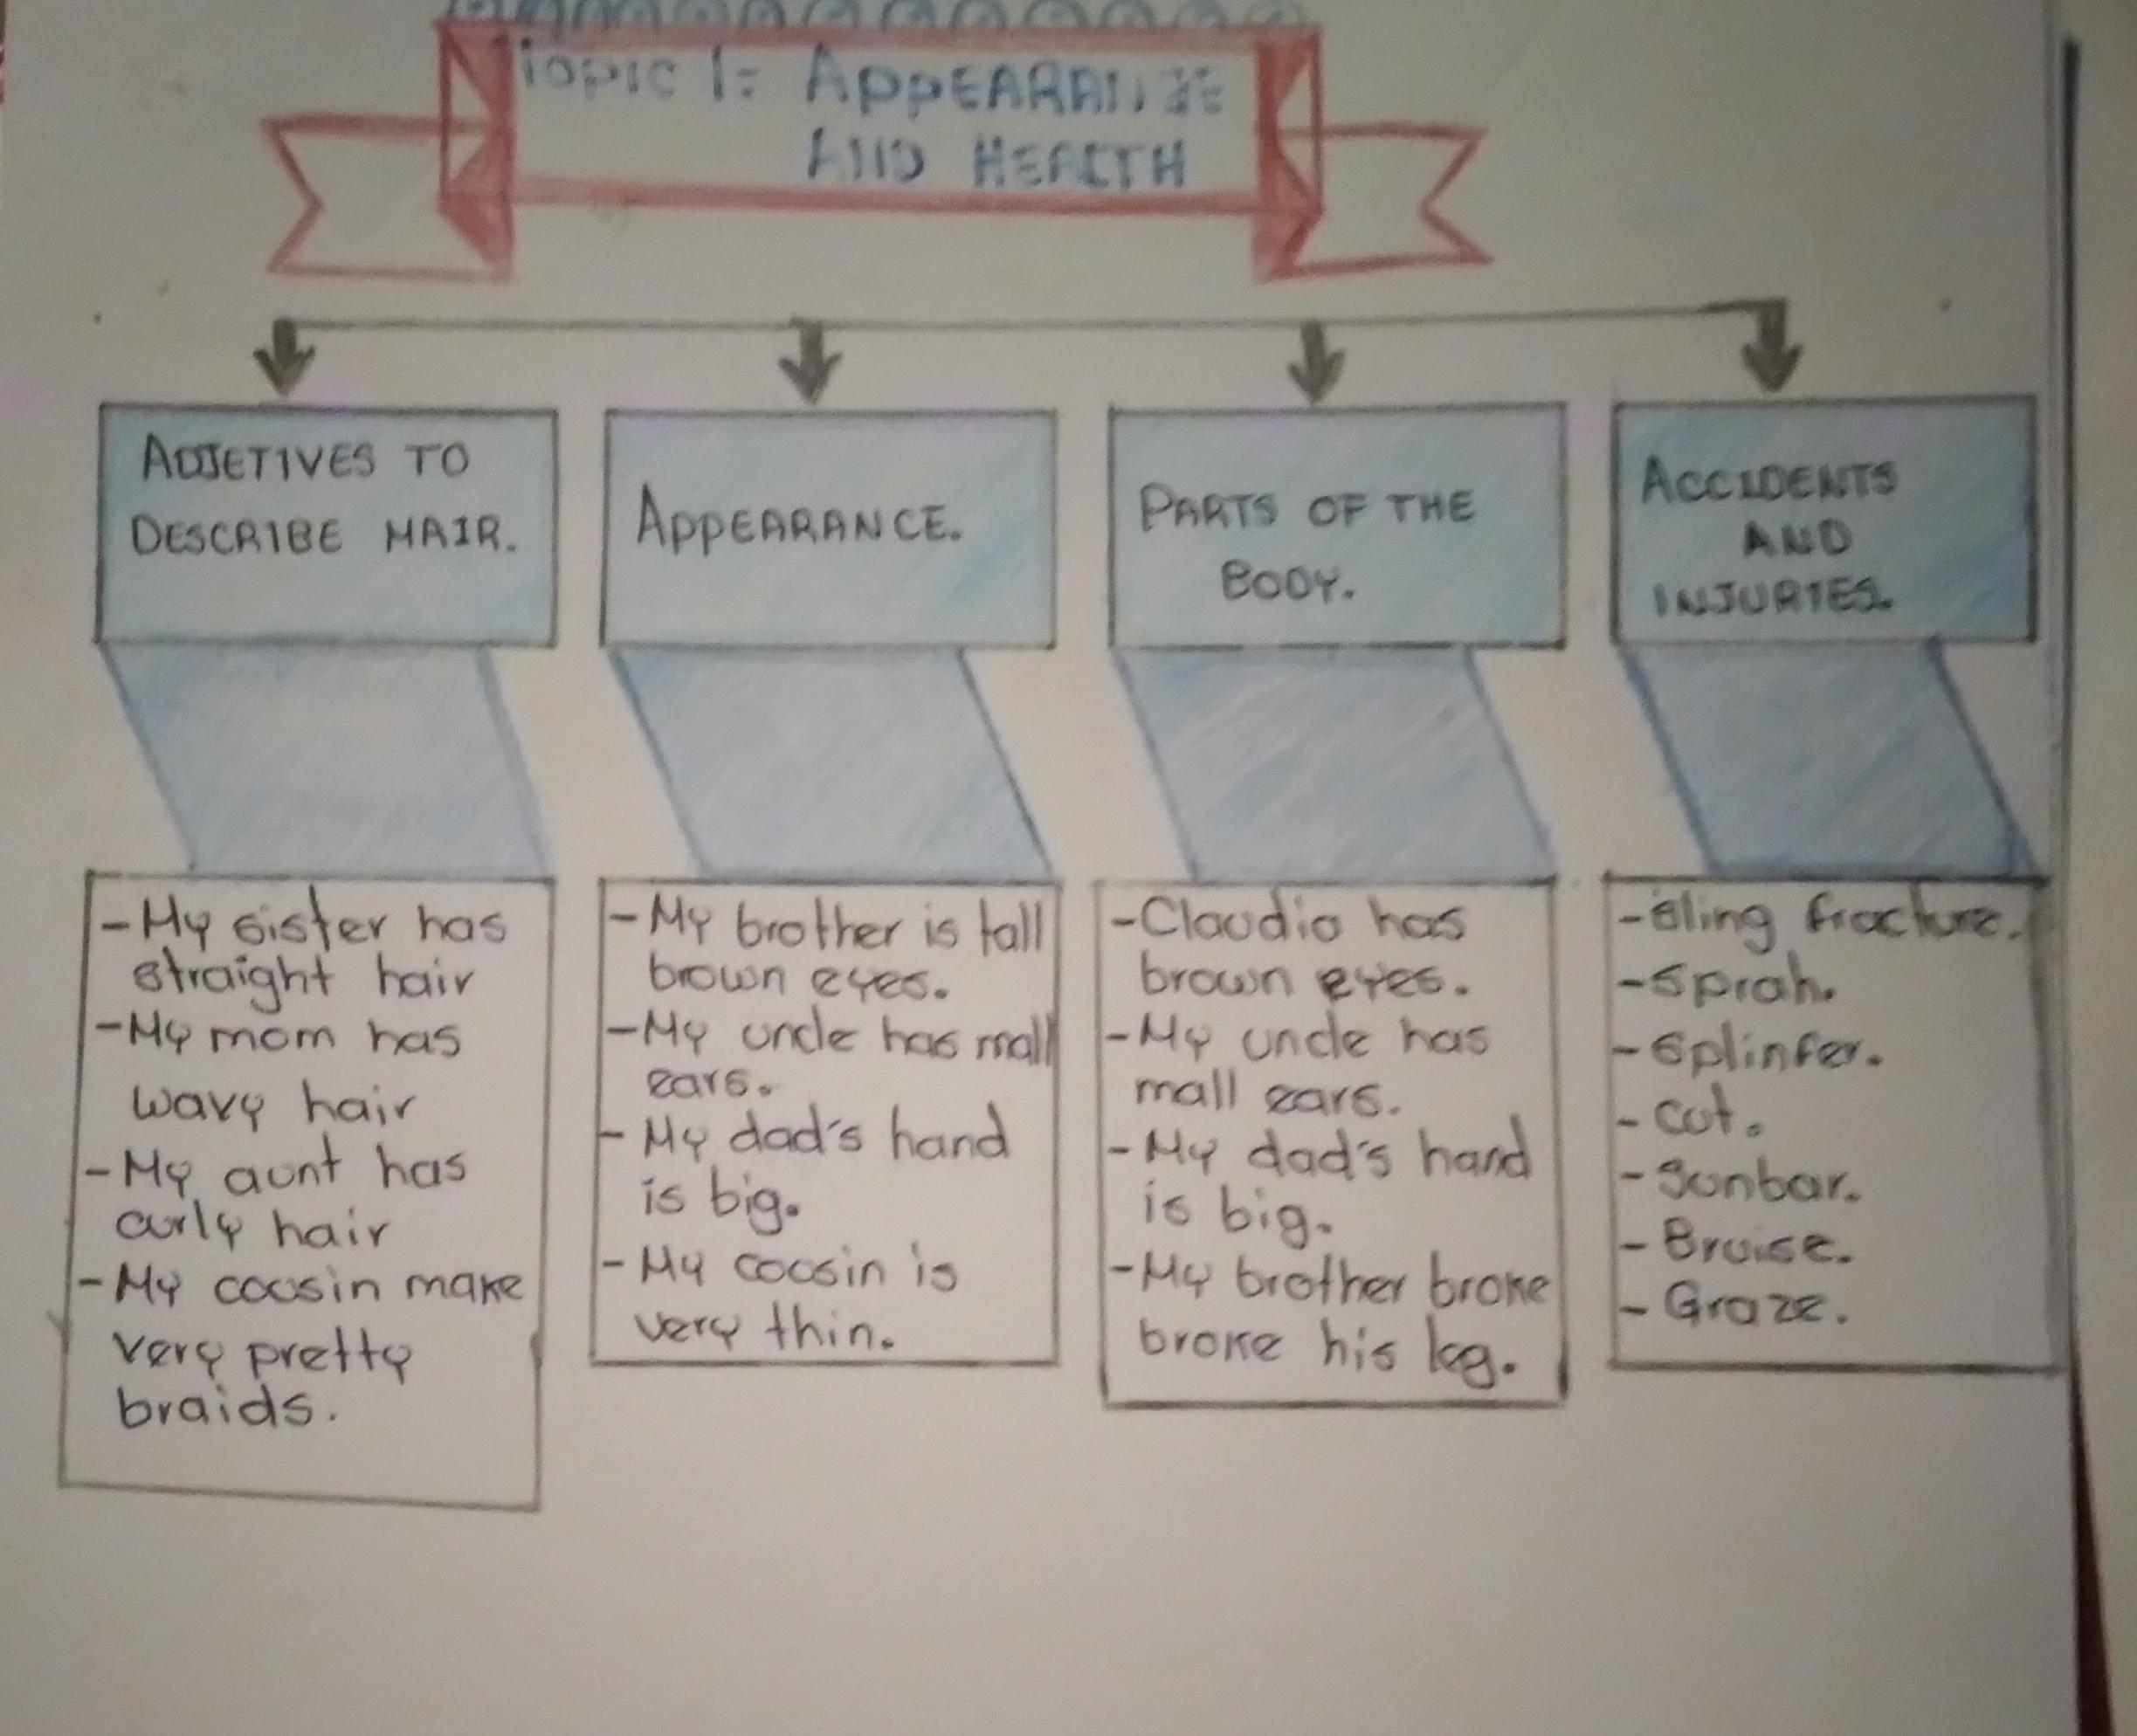 Topic 1: APPEARANCE
AND HEALTH
ADJETIVES TO
DESCRIBE HAIR.
- My sister has
straight hair
- My mom has
wavy hair
- My aunt has
curly hair
- My coosin make
very pretty
braids.
APPEARANCE.
- My brother is tall
brown eyes.
- My uncle has mall
ears.
- My dad's hand
is big.
- My coosin is
very thin.
PARTS OF THE
BODY.
- Claudio has
brown eyes.
- My uncle has
mall ears.
- My dad's hand
is big.
- My brother broke
broke his leg.
ACCIDENTS
AND
INJURIES.
- Sling fracture.
- Sprah.
- Splinfer.
- Cut.
- Sunbar.
- Bruise.
- Graze.